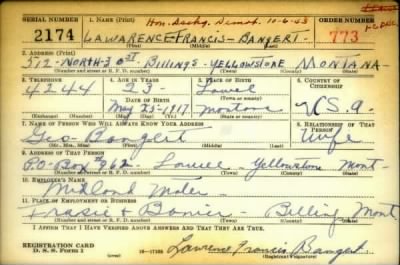 SERIAL NUMBER 1. NAME (Print) ORDER NUMBER
Hon. Dischg. Demob. 10-6-53
2174 LAWARENCE-FRANCIS-BANGERT. 773
(First) (Middle) (Last)
2. ADDRESS (Print)
512-NORTH-30 ST- BILLINGS-YELLOWSTONE MONTANA-
(Number and street or R. F. D. number) (Town) (County) (State)
3. TELEPHONE 4. AGE IN YEARS 5. PLACE OF BIRTH 6. COUNTRY OF CITIZENSHIP
4244 23- Laurel
DATE OF BIRTH
May 23-1917 Montana U.S.A.
(Exchange) (No.) (Mo.) (Day) (Yr.) (Town or county) (State or country)
7. NAME OF PERSON WHO WILL ALWAYS KNOW YOUR ADDRESS 8. RELATIONSHIP OF THAT PERSON
Geo Bangert Wife
(Mr., Mrs., Miss) (First) (Middle) (Last)
9. ADDRESS OF THAT PERSON
P.O-Box 362 Laurel-Yellowstone Mont-
(Number and street or R. F. D. number) (Town) (County) (State)
10. EMPLOYER'S NAME
Midland
11. PLACE OF EMPLOYMENT OR BUSINESS
Billings Mont
(Number and street or R. F. D. number) (Town) (County) (State)
I AFFIRM THAT I HAVE VERIFIED ABOVE ANSWERS AND THAT THEY ARE TRUE.
REGISTRATION CARD
D. S. S. Form 1 Lawrence Francis Bangert
(over) (Registrant's signature)